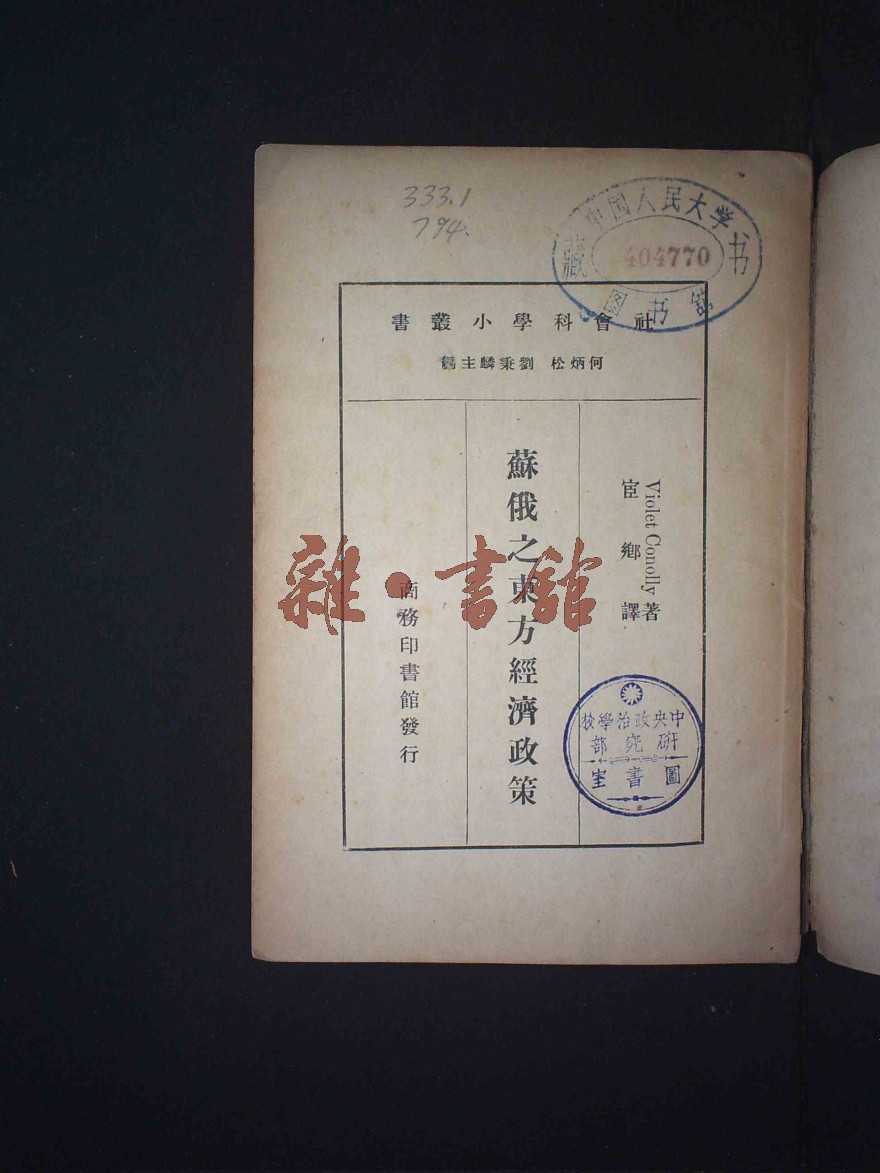 333.1
794.
中国人民大学
藏
书
404770
图书馆
社會科學小叢書
何炳松 劉秉麟主編
Violet Conolly 著
宦鄉 譯
蘇俄之東方經濟政策
商務印書館發行
雜·書館
中央政治學校
研究部
圖書室